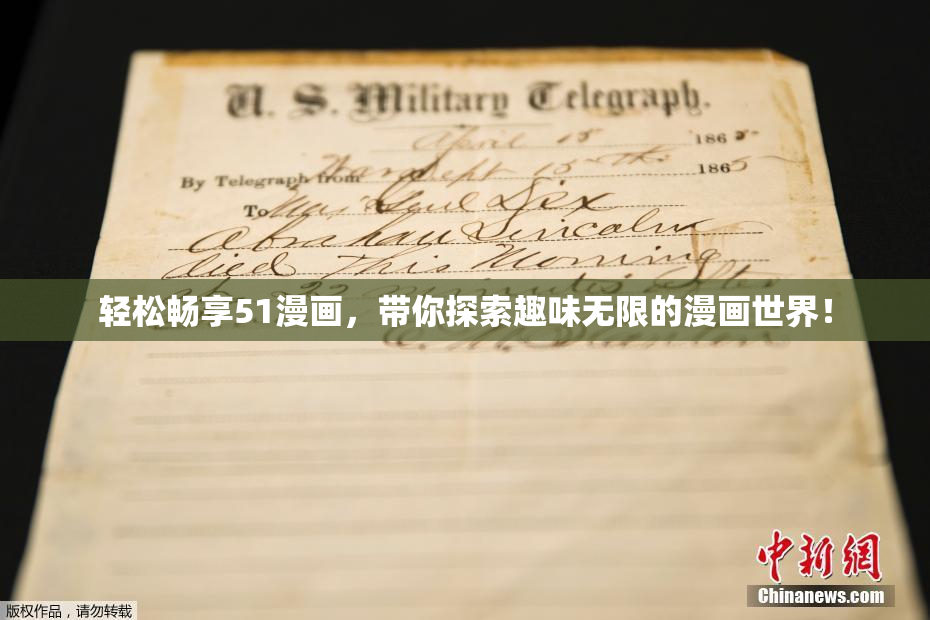 U. S. Military Telegraph.
April 15 1865
By Telegraph from War Dept 15th 1865
To Maj Genl Dix
Abraham Lincoln
died This Morning
at 22 minutes after
轻松畅享51漫画，带你探索趣味无限的漫画世界！
E. M. Stanton
中新網
Chinanews.com
版权作品，请勿转载